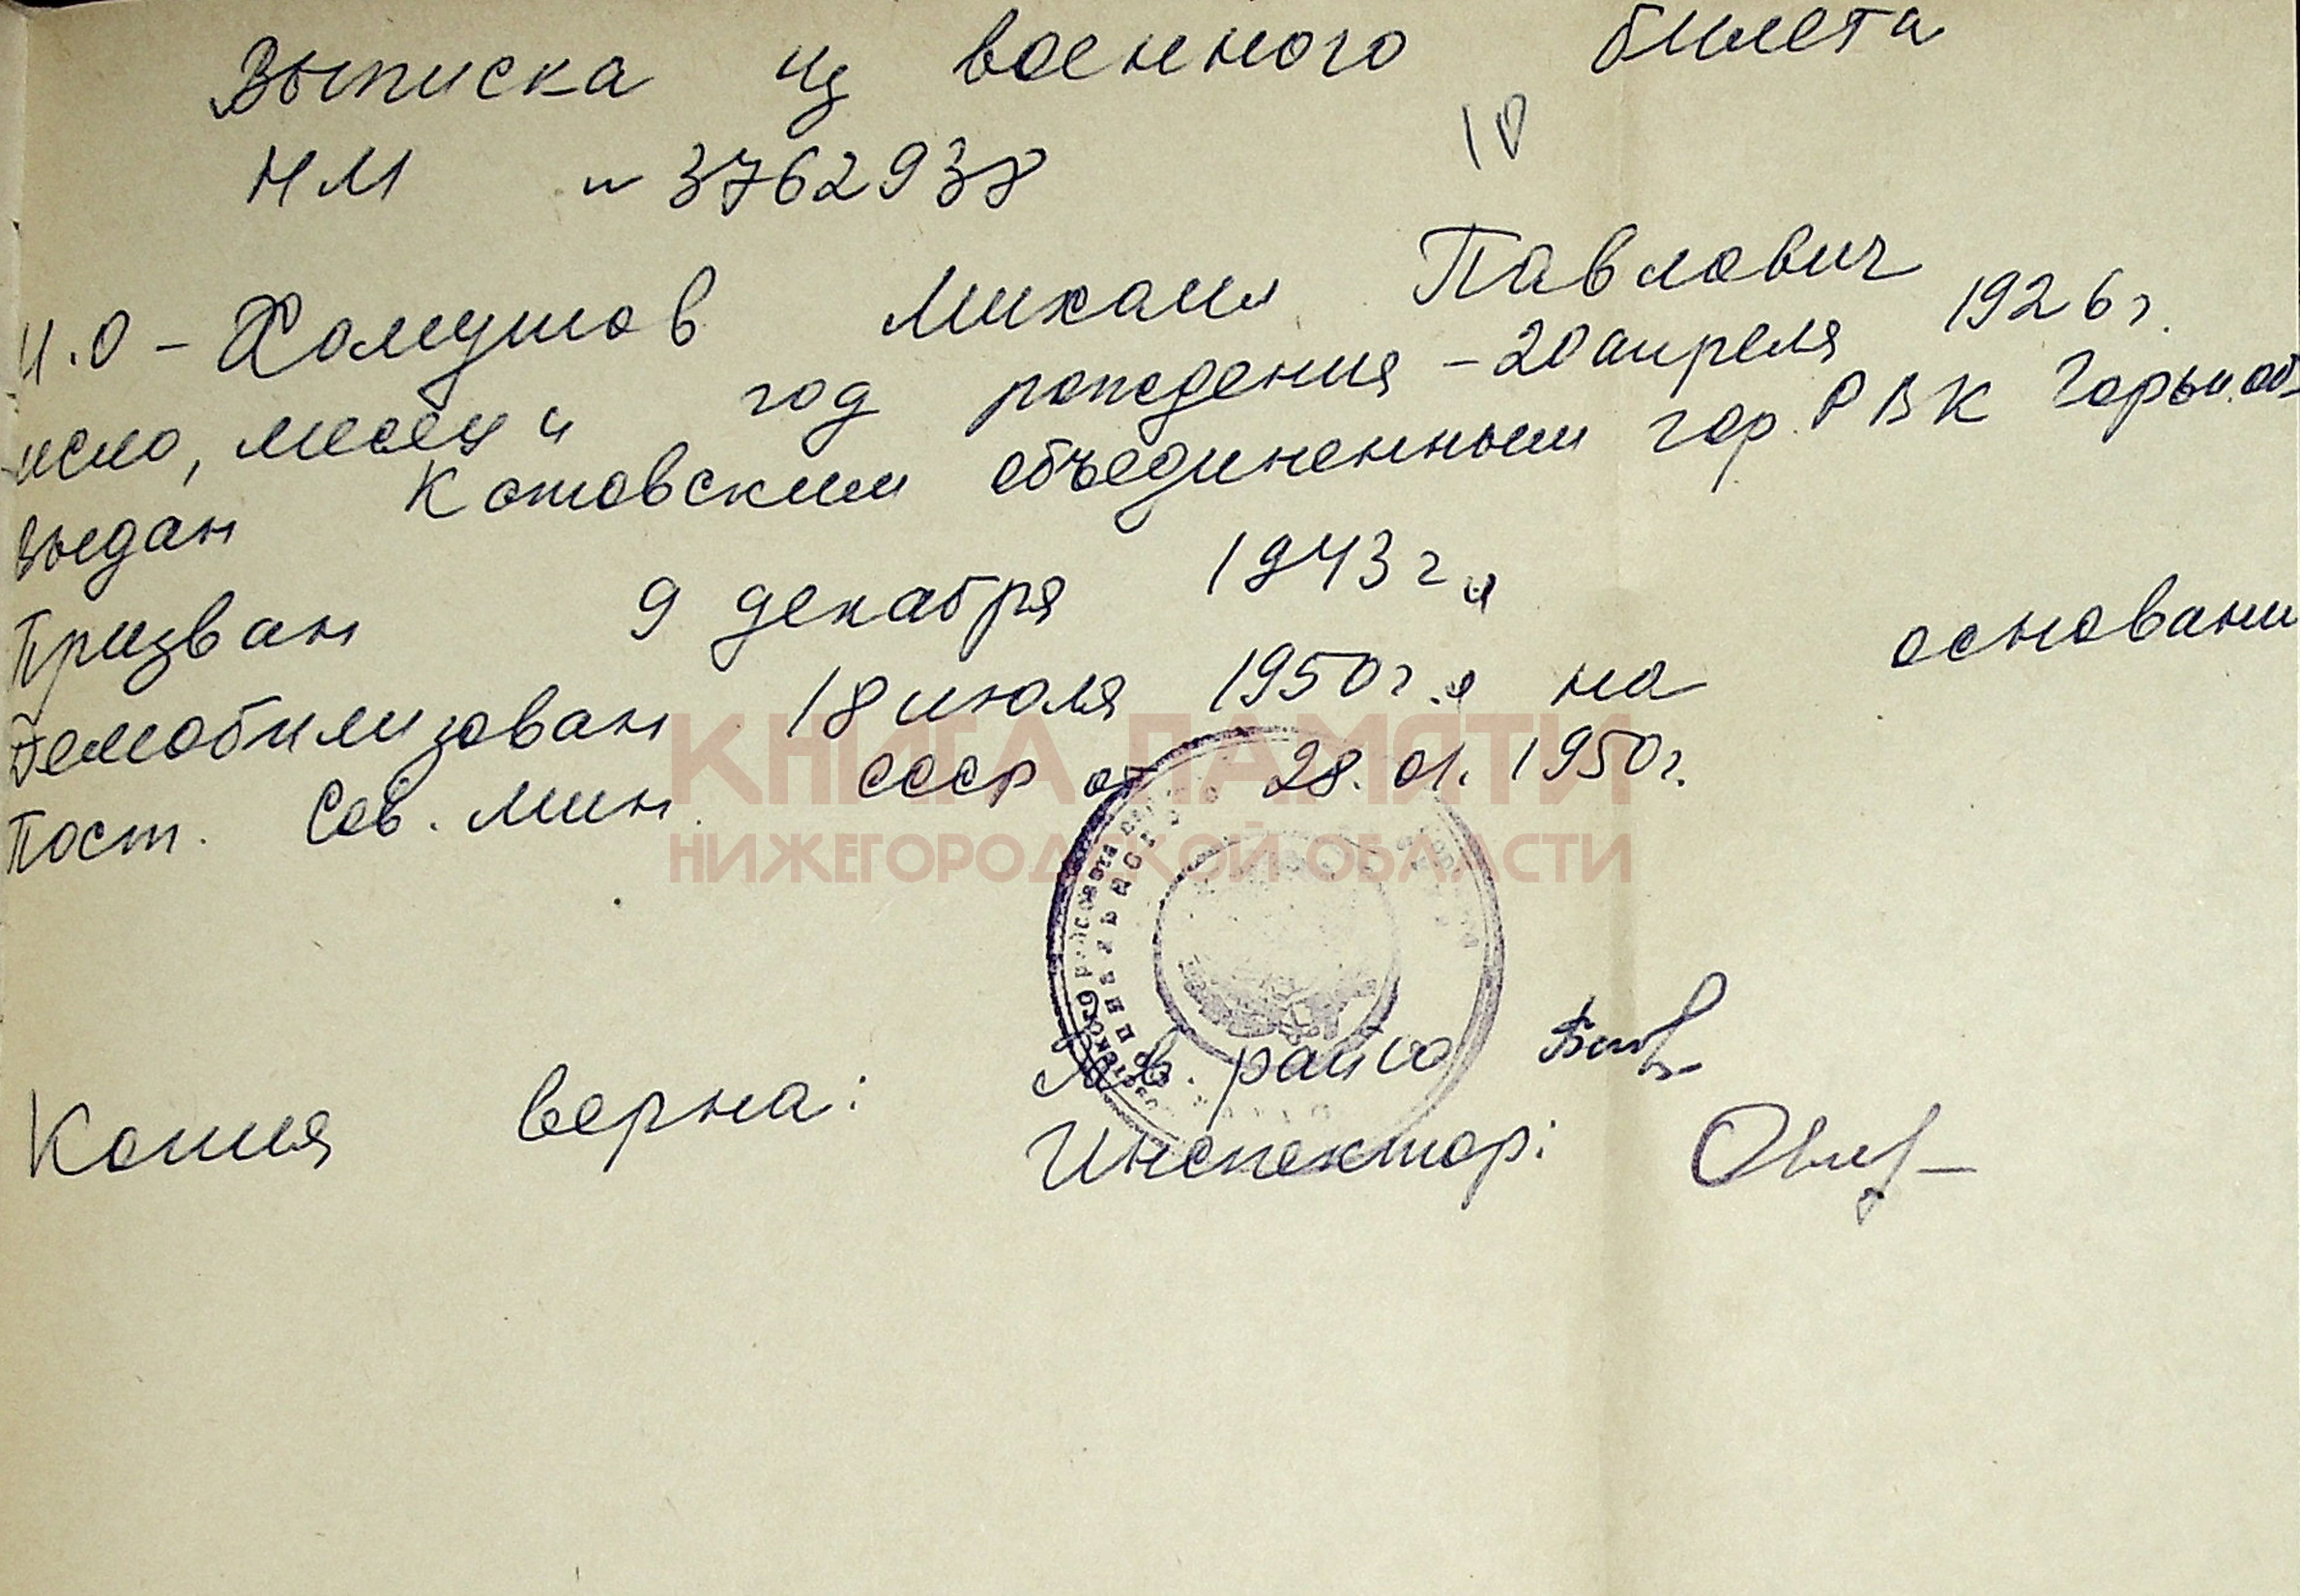 Выписка из военного билета
НМ № 3762938
10
И.О - Хомушов Михаил Павлович
исло, месяц и год рождения - 20 апреля 1926 г.
Выдан объединенным гор. РВК Горьк. об-
Призван 9 декабря 1943 г.
Демобилизован 18 июля 1950 г. на основани
Пост. Сов. Мин. СССР от 28.01.1950 г.
КНИГА ПАМЯТИ
НИЖЕГОРОДСКОЙ ОБЛАСТИ
Копия верна: райсо
Инспектор: